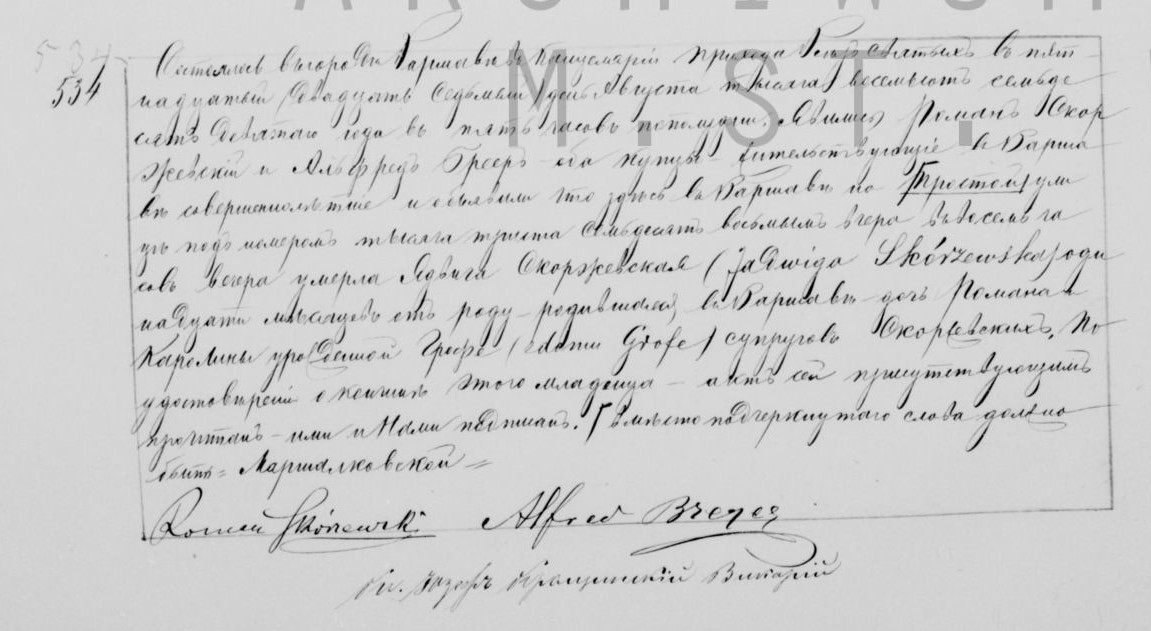 ARCHIWUM
M. ST.
534
534
Состоялось въ городѣ Варшавѣ въ Канцеляріи прихода Всѣхъ Святыхъ въ пят-
надцатый двадцать седьмый день Августа тысяча восемьсотъ семьде
сятъ девятаго года въ пять часовъ пополудни. Явились Романъ Скор
жевскій и Альфредъ Брееръ оба купцы жительствующіе въ Варша
вѣ совершеннолѣтние и объявили что здѣсь въ Варшавѣ по Простой ули
цѣ подъ номеромъ тысяча триста семьдесятъ восьмымъ вчера въ восемь ча
совъ вечера умерла Ядвига Скоржевская (Jadwiga Skórzewska) оди
надцати мѣсяцевъ отъ роду – родившаяся въ Варшавѣ – дочь Романа и
Каролины урожденной Грофе (z domu Grofe) супруговъ Скоржевскихъ. По
удостовѣреніи о кончинѣ этого младенца – актъ сей присутствующимъ
прочитанъ – ими и Нами подписанъ. Вмѣсто подчеркнутаго слова должно
быть = Маршалковской =
Roman Skórzewski Alfred Breyer
Кс. Іозефъ Викарій